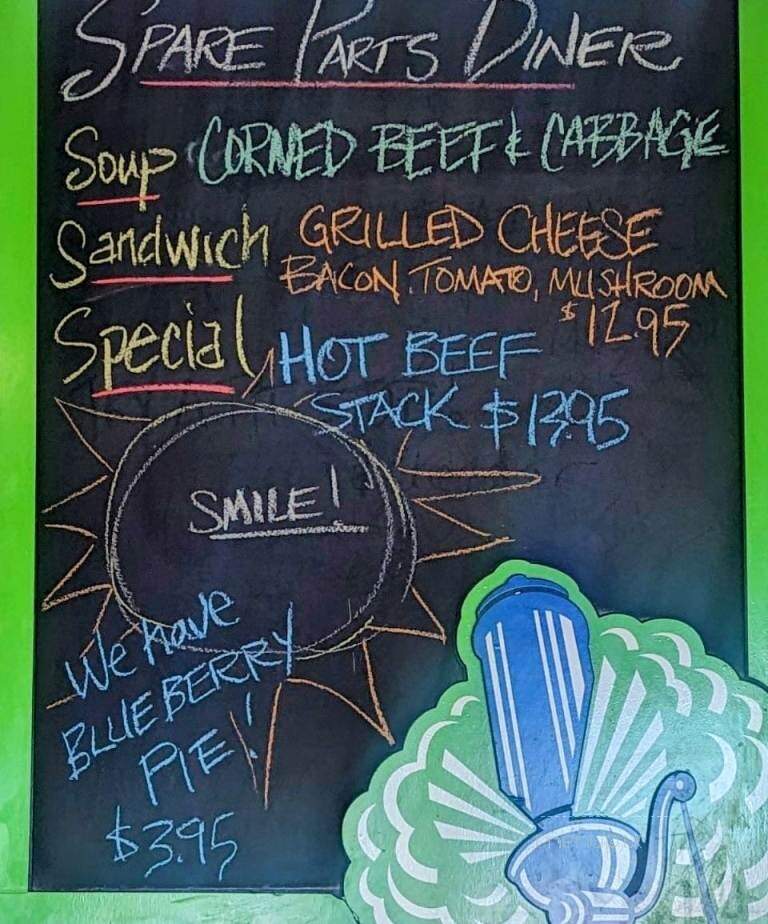 SPARE PARTS DINER
Soup CORNED BEEF & CABBAGE
Sandwich GRILLED CHEESE
BACON, TOMATO, MUSHROOM
$12.95
Special HOT BEEF
STACK $13.95
SMILE!
We have
BLUEBERRY
PIE!
$3.95